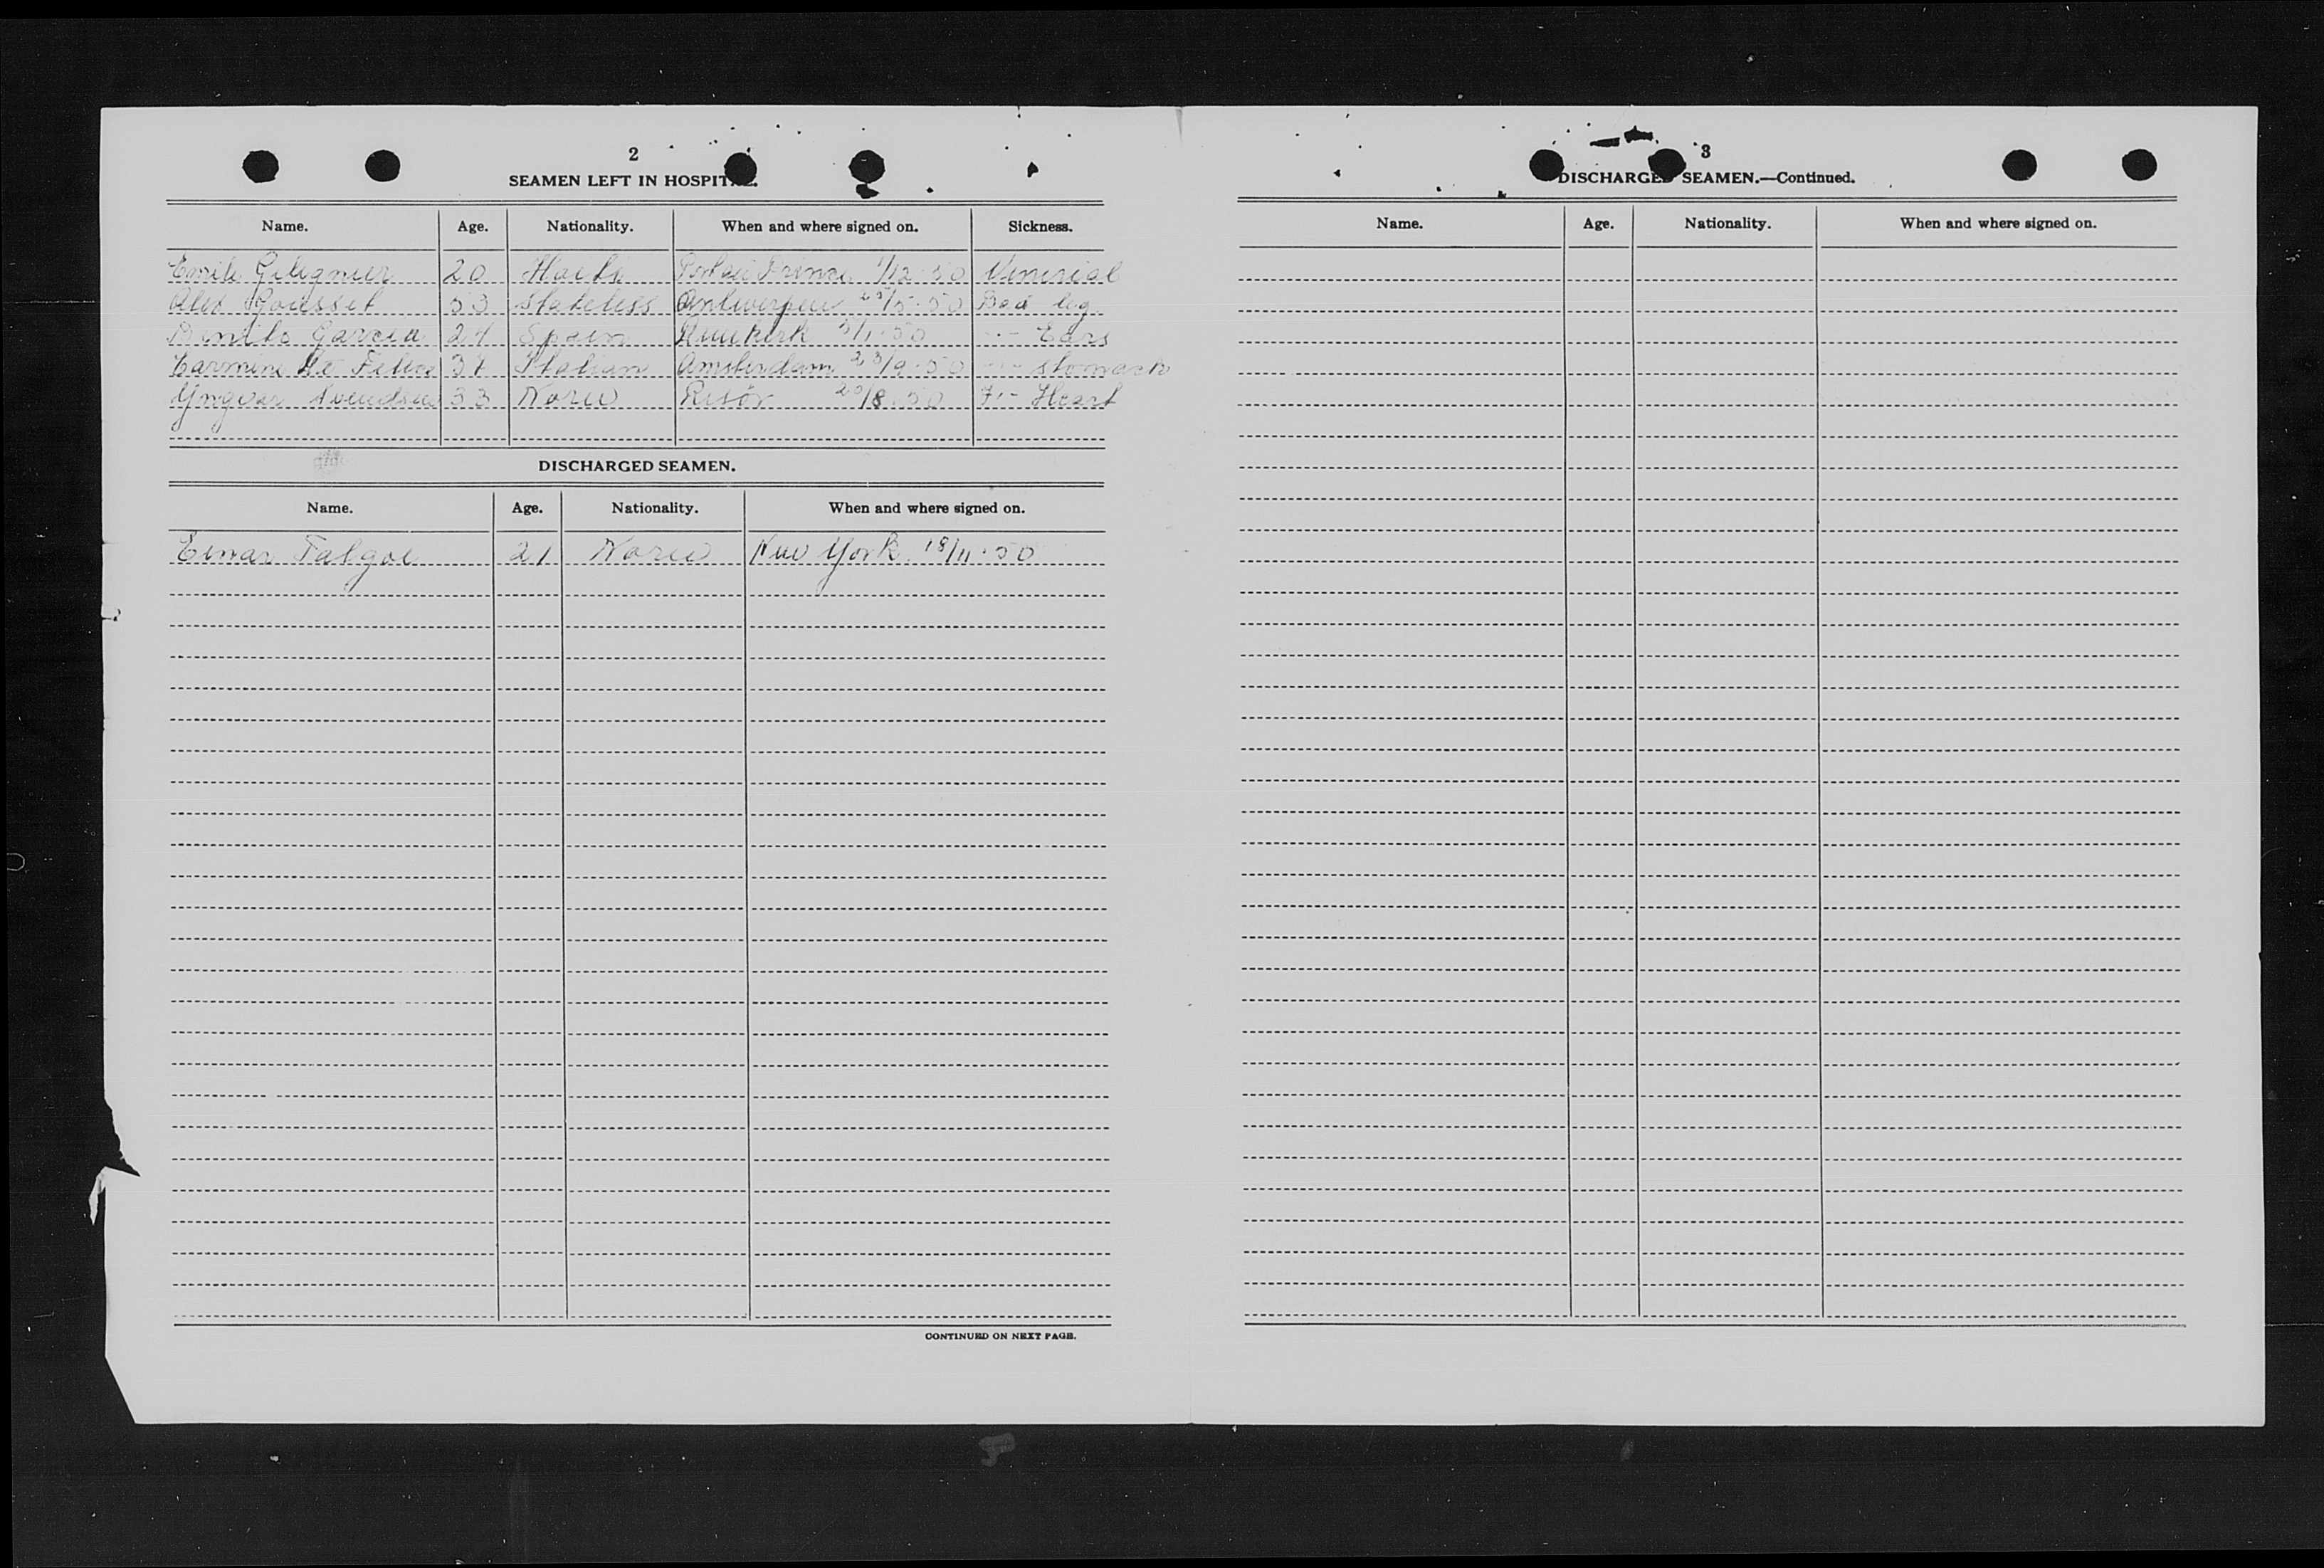 2
SEAMEN LEFT IN HOSPITAL.
Name. Age. Nationality. When and where signed on. Sickness.
Emile 20 Haiti Port au Prince 1/12-50 Venerial
Alex Rousset 53 Stateless Antwerpen 25/5-50 Bad leg
Benito Garcia 24 Spain 5/1-50 -"- Ears
Carmine De 37 Italian Amsterdam 23/9-50 -"- stomach
Yngvar Svendsen 33 Norw Risör 23/8-50 Heart
DISCHARGED SEAMEN.
Name. Age. Nationality. When and where signed on.
Einar Talgoe 21 Norw New York 18/11-50
CONTINUED ON NEXT PAGE.
3
DISCHARGED SEAMEN.—Continued.
Name. Age. Nationality. When and where signed on.